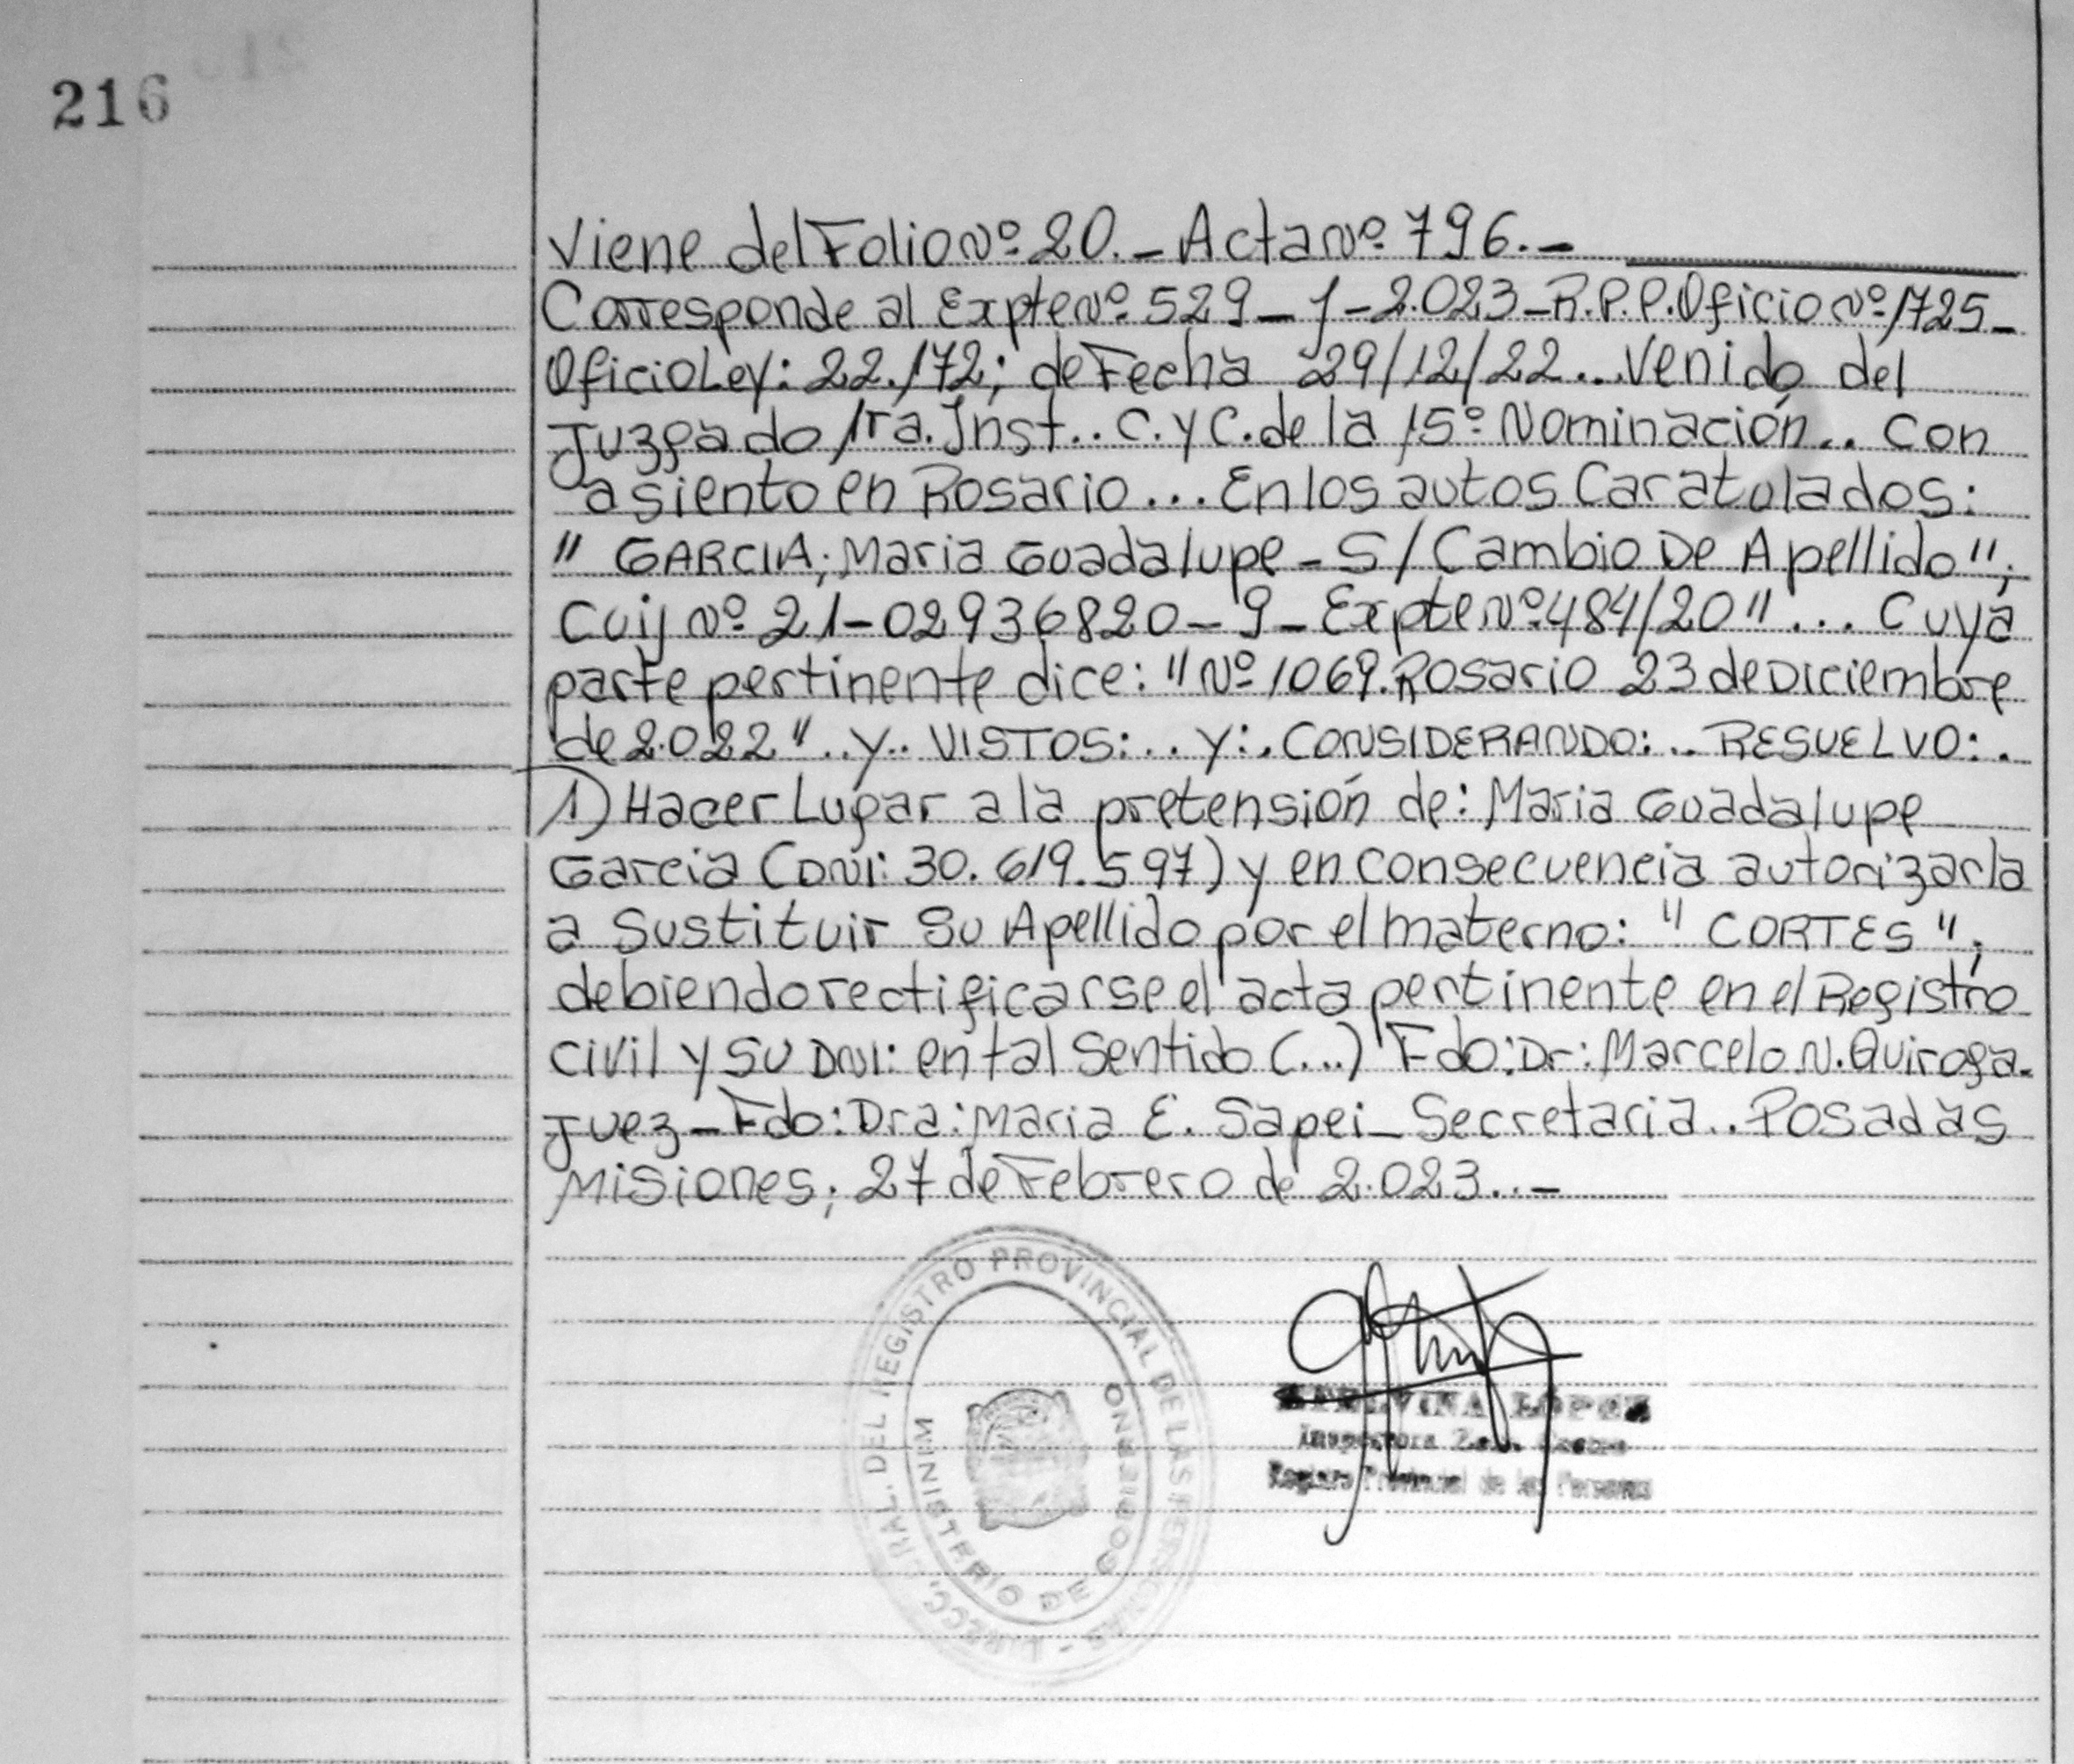 216
Viene del Folio Nº 20._ Acta Nº 796._
Corresponde al Expte Nº 529_J_2.023_R.P.P. Oficio Nº 1725_
Oficio Ley: 22.172; de Fecha 29/12/22... Venido del
Juzgado 1ra. Inst.. C. y C. de la 15º Nominación.. con
asiento en Rosario... En los autos Caratulados:
" GARCIA; Maria Guadalupe - S/ Cambio De Apellido ";
Cuij Nº 21-02936820-9_ Expte Nº 484/20 "... Cuya
parte pertinente dice: " Nº 1069. Rosario 23 de Diciembre
de 2.022 " .. y.. VISTOS: .. y: . CONSIDERANDO: .. RESUELVO: .
1) Hacer Lugar a la pretensión de: Maria Guadalupe
Garcia (DNI: 30.619.597) y en consecuencia autorizarla
a Sustituir Su Apellido por el materno: " CORTES ";
debiendo rectificarse el acta pertinente en el Registro
civil y su DNI: en tal Sentido (...) Fdo: Dr: Marcelo N. Quiroga.
Juez_ Fdo: Dra: Maria E. Sapei_ Secretaria.. Posadas
Misiones; 27 de Febrero de 2.023..-
DEL REGISTRO PROVINCIAL DE LAS PERSONAS
MINISTERIO DE GOBIERNO
LOPEZ
Inspectora
Registro Provincial de las Personas